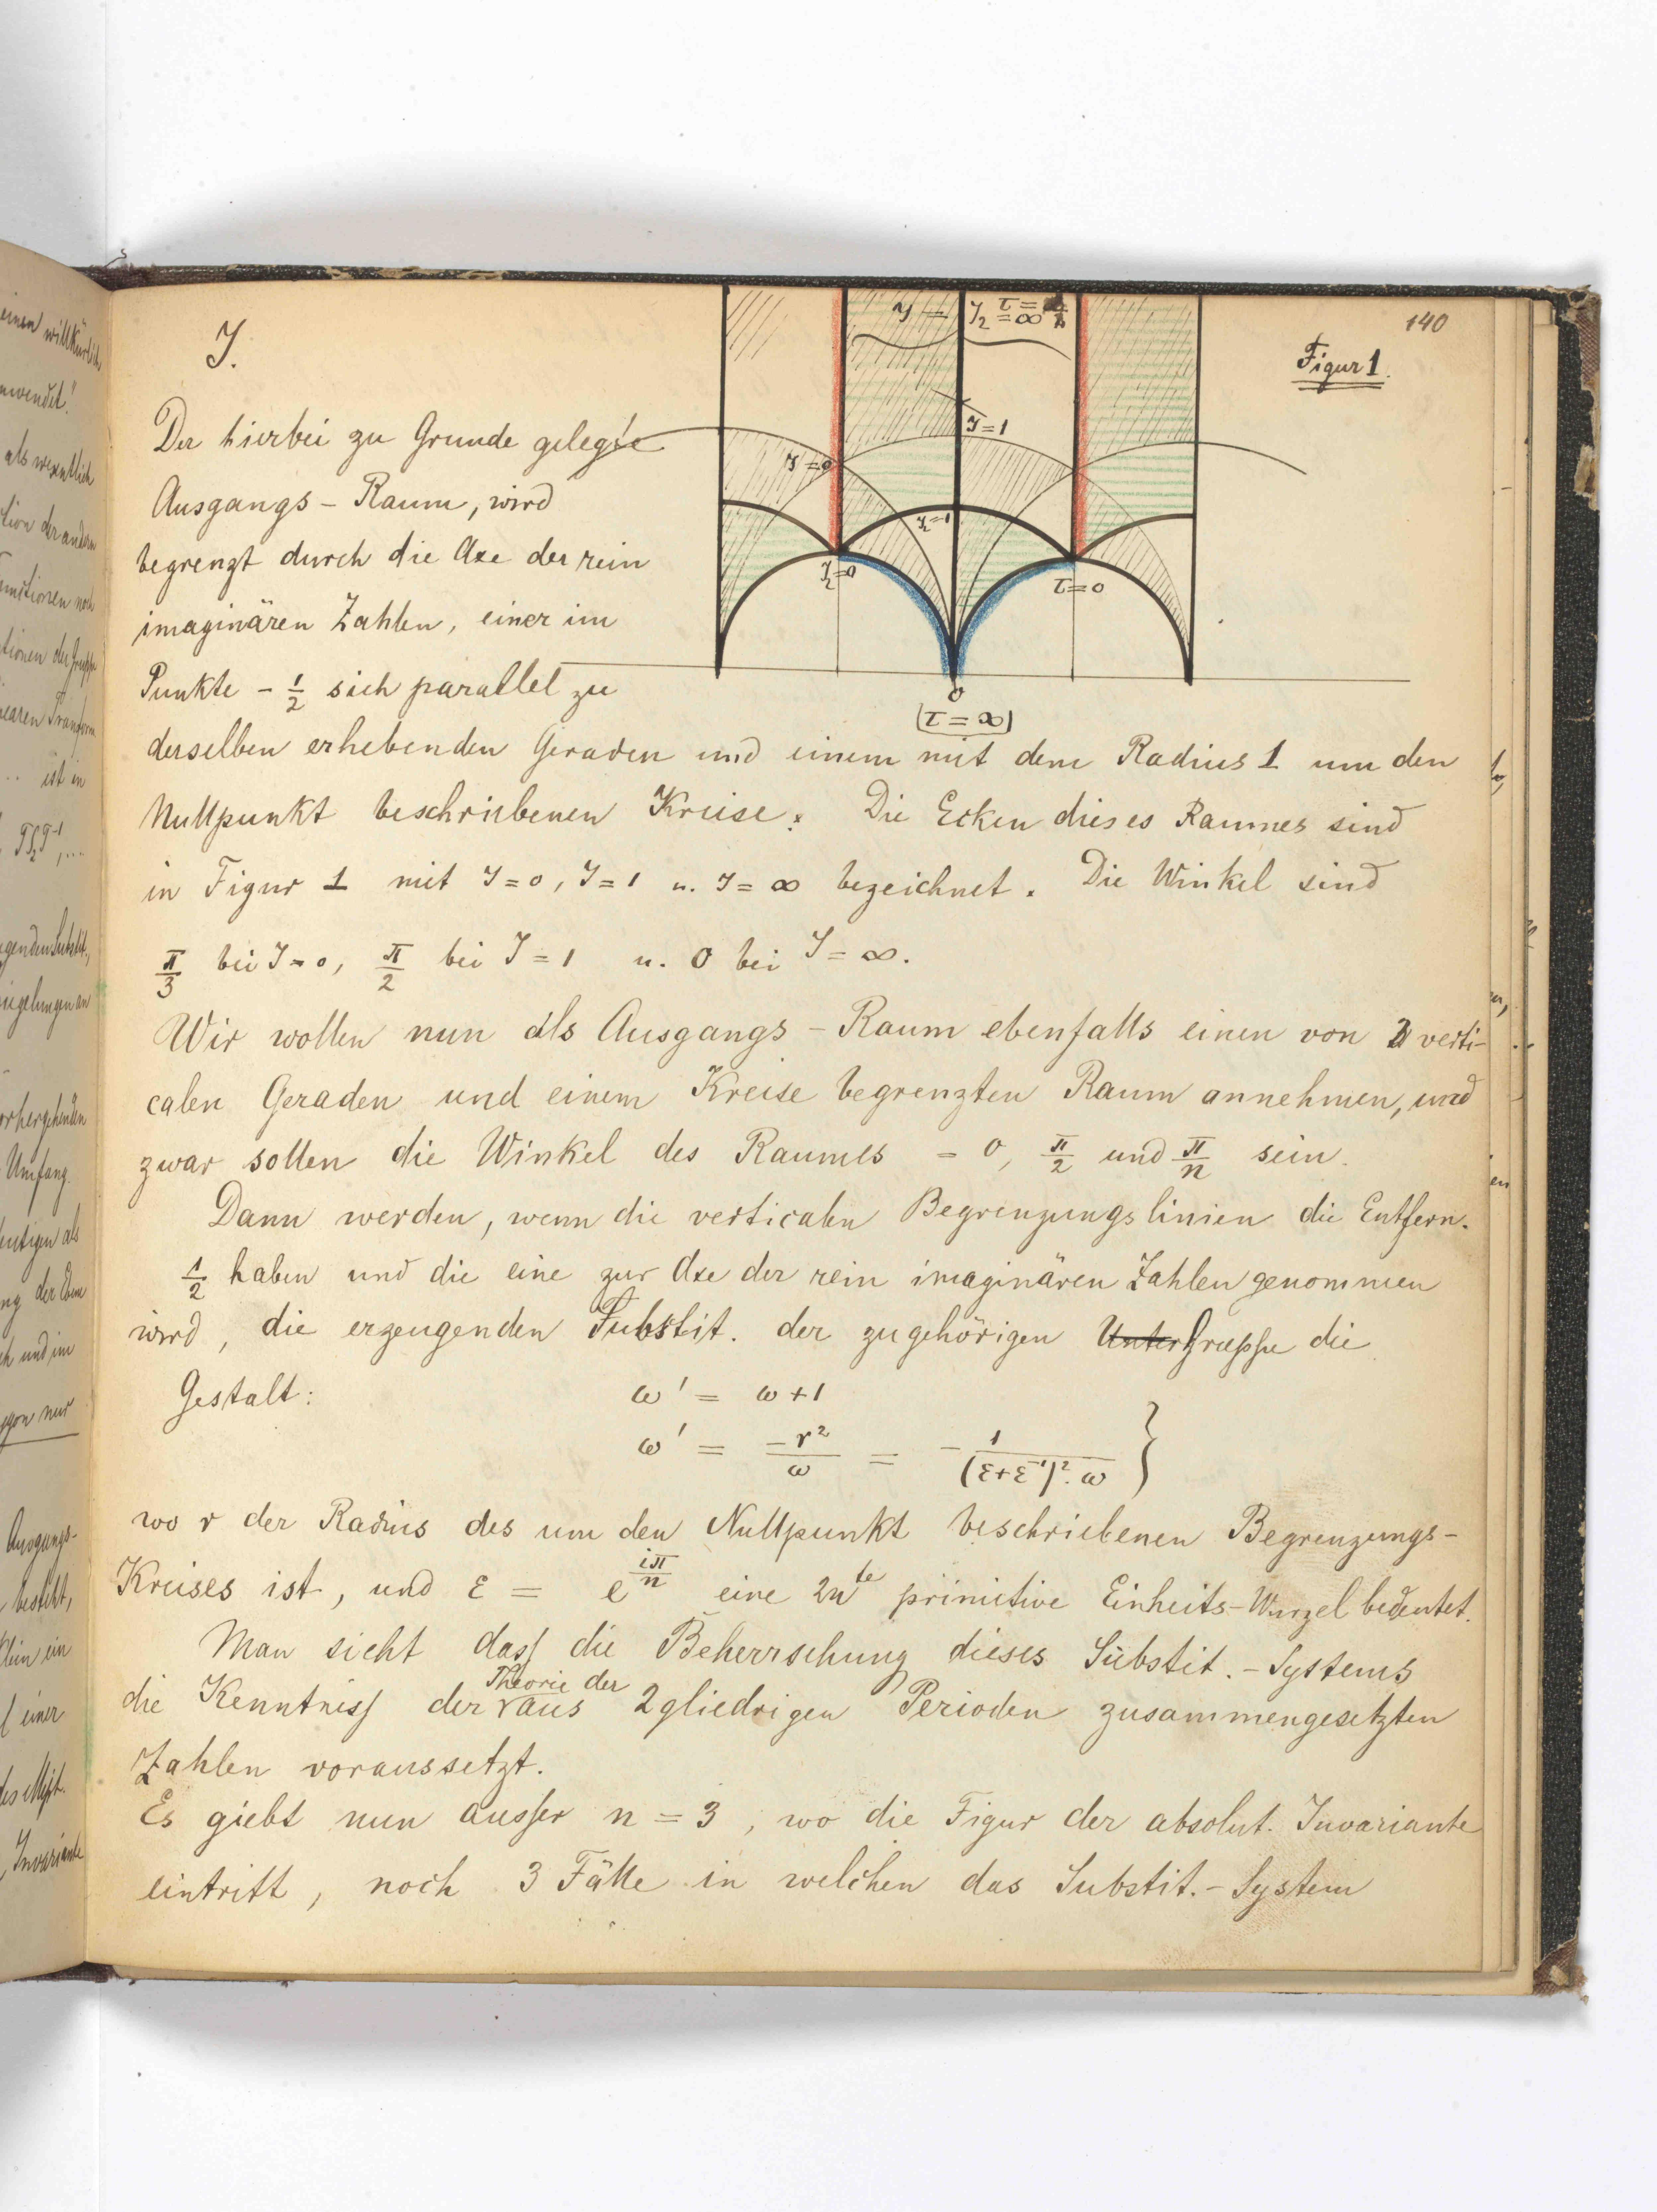 140
J.
Figur 1.
J = J₂ = ∞
τ =
J=1
J=0
J₂=1
J₂=0
τ=0
0
(τ=∞)
Der hierbei zu Grunde gelegte
Ausgangs-Raum, wird
begrenzt durch die Axe der rein
imaginären Zahlen, einer im
Punkte - 1/2 sich parallel zu
derselben erhebenden Geraden und einem mit dem Radius 1 um den
Nullpunkt beschriebenen Kreise. Die Ecken dieses Raumes sind
in Figur 1 mit J=0, J=1 u. J=∞ bezeichnet. Die Winkel sind
π/3 bei J=0, π/2 bei J=1 u. 0 bei J=∞.
Wir wollen nun als Ausgangs-Raum ebenfalls einen von 2 verti-
calen Geraden und einem Kreise begrenzten Raum annehmen, und
zwar sollen die Winkel des Raumes = 0, π/2 und π/n sein.
Dann werden, wenn die verticalen Begrenzungslinien die Entfern.
1/2 haben und die eine zur Axe der rein imaginären Zahlen genommen
wird, die erzeugenden Substit. der zugehörigen Unter Gruppe die
Gestalt: ω' = ω+1
ω' = -r²/ω = - 1/((ε+ε⁻¹)².ω) }
wo r der Radius des um den Nullpunkt beschriebenen Begrenzungs-
Kreises ist, und ε = e^(iπ/n) eine 2nte primitive Einheits-Wurzel bedeutet.
Man sieht dass die Beherrschung dieses Substit.-Systems
die Kenntniss der Theorie der aus 2gliedrigen Perioden zusammengesetzten
Zahlen voraussetzt.
Es giebt nun ausser n=3, wo die Figur der absolut. Invariante
eintritt, noch 3 Fälle in welchen das Substit.-System
einen
als wesentlich
der andern
ist in
Umfang
der Ebene
und im
nur
Ausgangs-
besteht,
Klein ein
einer
Invariante